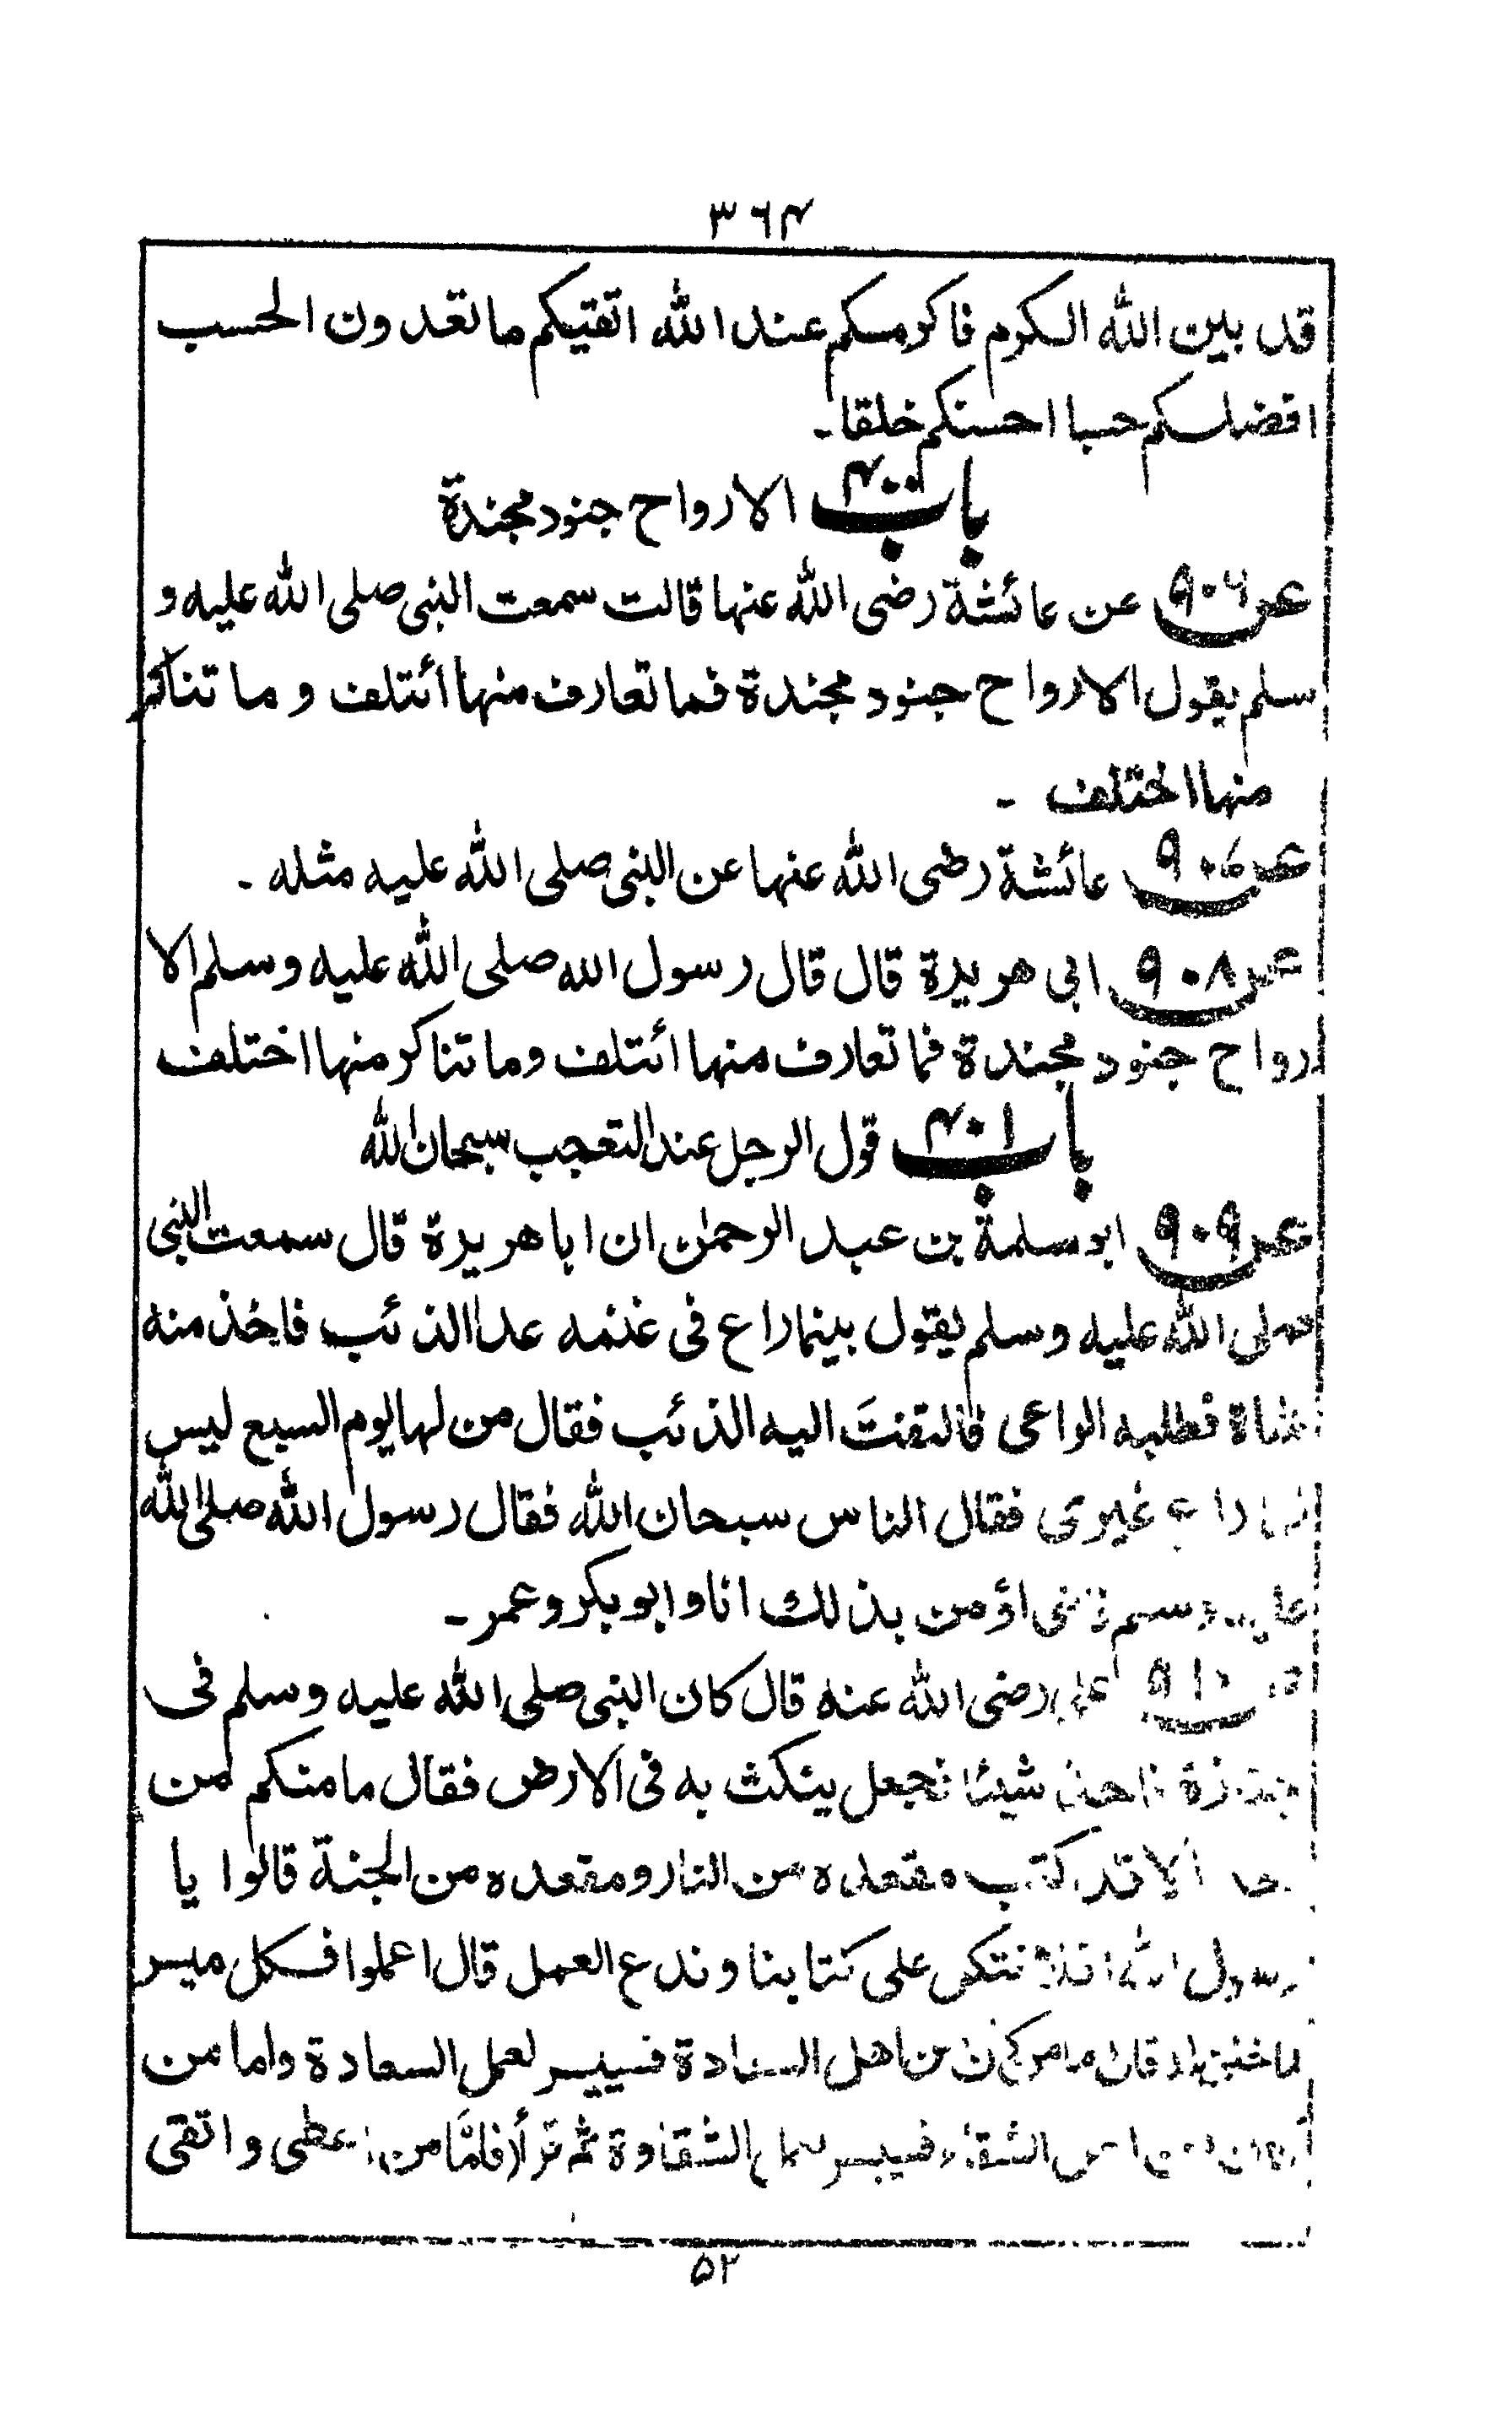 ۳۶۴
قد بين الله الكرم فاكرمكم عند الله اتقيكم ما تعدون الحسب
افضلكم حسبا احسنكم خلقا-
باب ۴۰۰ الارواح جنود مجندة
عن ۹۰۶ عن عائشة رضى الله عنها قالت سمعت النبى صلى الله عليه و
سلم يقول الارواح جنود مجندة فما تعارف منها ائتلف و ما تناكر
منها اختلف -
عن ۹۰۷ عائشة رضى الله عنها عن النبى صلى الله عليه مثله -
عن ۹۰۸ ابى هريرة قال قال رسول الله صلى الله عليه وسلم الا
رواح جنود مجندة فما تعارف منها ائتلف وما تناكر منها اختلف
باب ۴۰۱ قول الرجل عند التعجب سبحان الله
عن ۹۰۹ ابو سلمة بن عبد الرحمٰن ان ابا هريرة قال سمعت النبى
صلى الله عليه وسلم يقول بينما راع فى غنمه عدا الذئب فاخذ منه
شاة فطلبه الراعى فالتفتَ اليه الذئب فقال من لها يوم السبع ليس
لها راع غيرى فقال الناس سبحان الله فقال رسول الله صلى الله
عليه وسلم فانى اؤمن بذلك انا و ابو بكر و عمر-
عن ۹۱۰ على رضى الله عنه قال كان النبى صلى الله عليه وسلم فى
جنازة فاخذ شيئا فجعل ينكث به فى الارض فقال ما منكم من
احد الا قد كتب مقعده من النار ومقعده من الجنة قالوا يا
رسول الله افلا نتكل على كتابنا و ندع العمل قال اعملوا فكل ميسر
لما خلق له قال اما من كان من اهل السعادة فسييسر لعمل السعادة واما من
كان من اهل الشقاء فسيبسر لعمل الشقاوة ثم قرأ (فامّا من اعطى و اتقى
۵۲